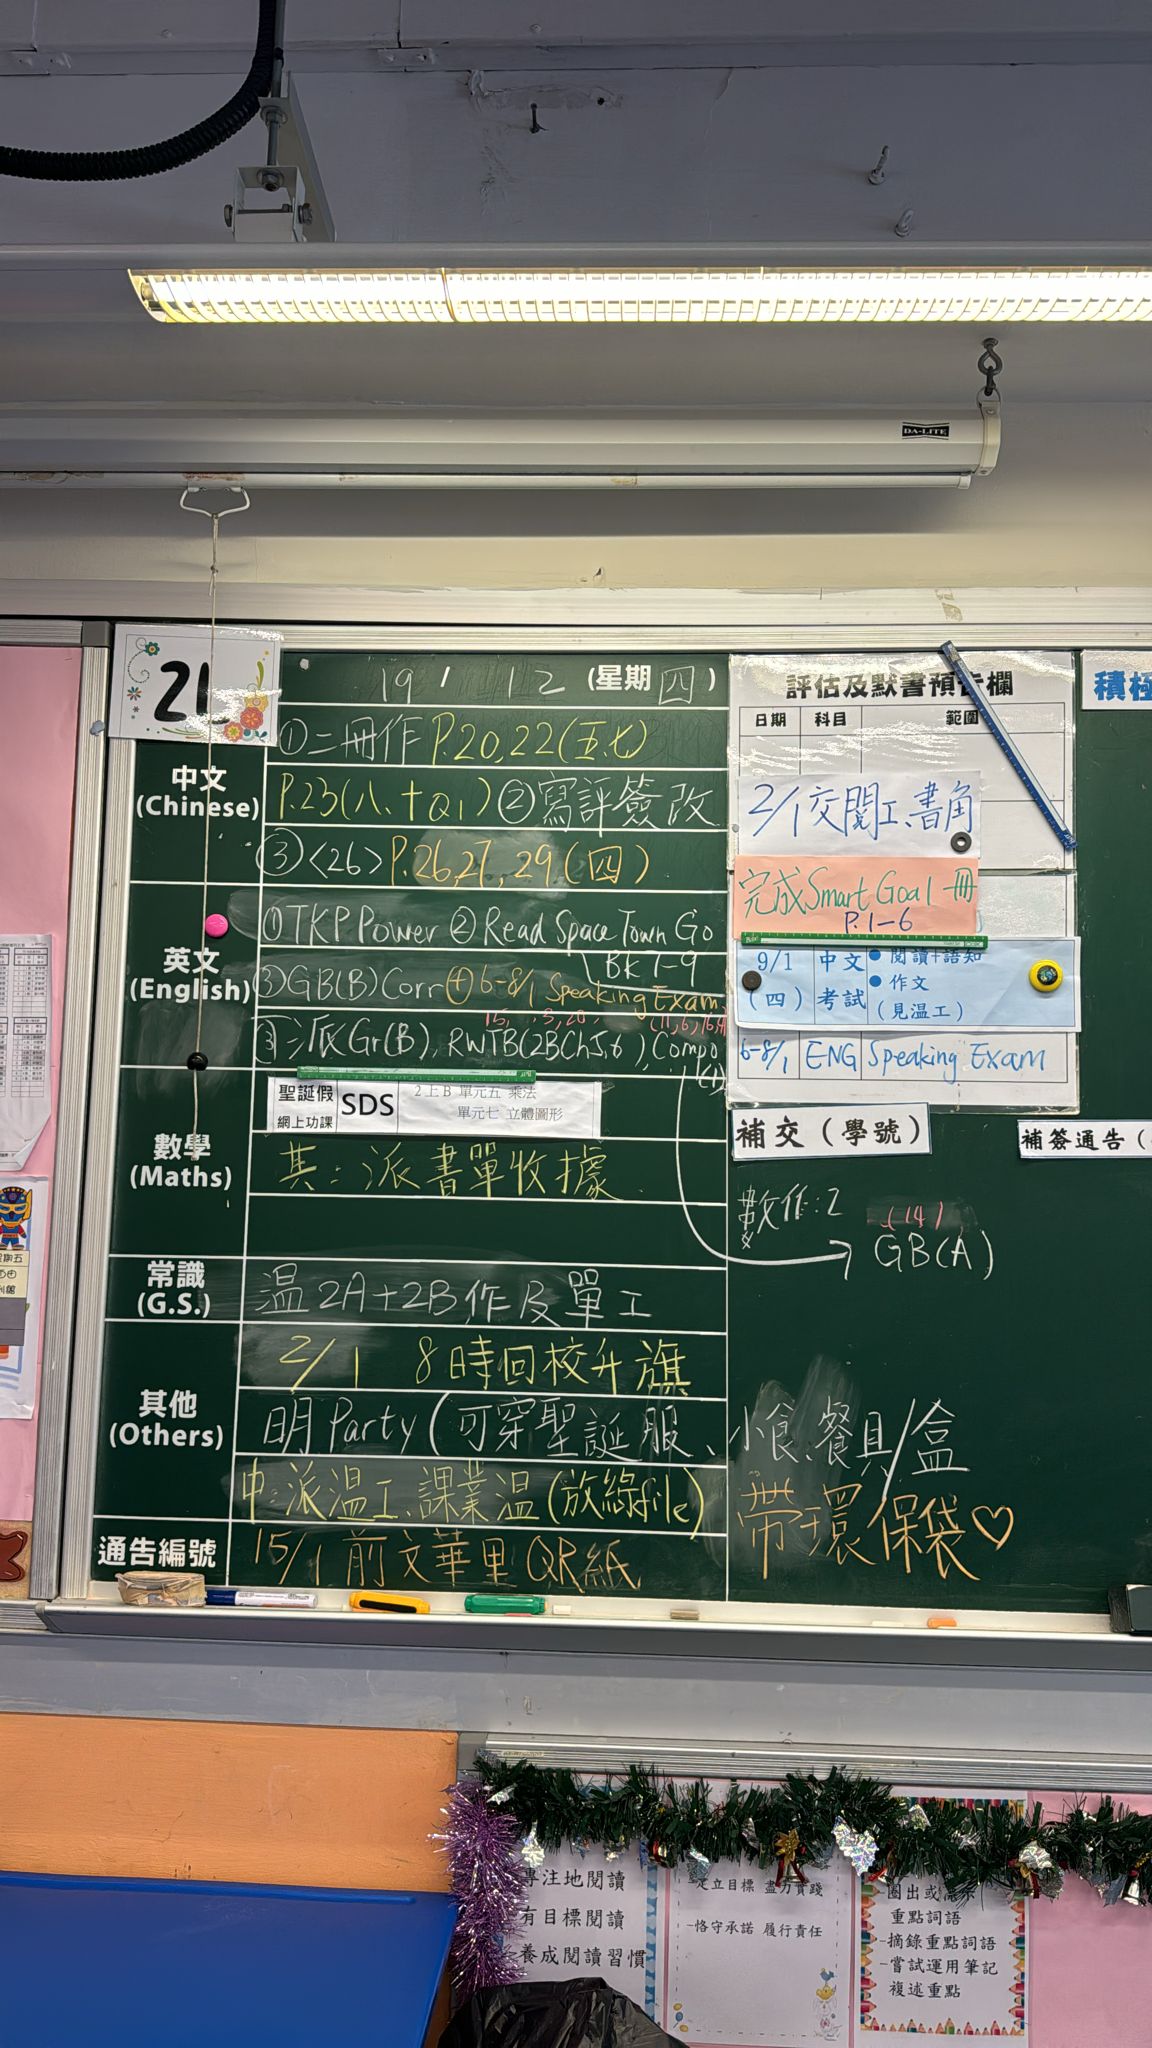 DA-LITE
2L
19 / 12 (星期四)
中文
(Chinese)
①二冊作 P.20,22(五.七)
P.23(八、十Q1) ②寫評簽改
③<26> P.26,27,29(四)
英文
(English)
①TKP Power ②Read Space Town Go
BK 1-9
③GB(B) Corr ④6-8/1 Speaking Exam
15, 5, 20
(11, 6, 16,
③派Gr(B), RWTB(2BCh5,6), Compo
(1)
數學
(Maths)
聖誕假
網上功課
SDS
2上B 單元五 乘法
單元七 立體圖形
其:派書單收據
常識
(G.S.)
温2A+2B作及單工
其他
(Others)
2/1 8時回校升旗
明Party(可穿聖誕服、小食、餐具/盒
中:派温工、課業温(放綠file)
帶環保袋♡
通告編號
15/1前文華里QR紙
評估及默書預告欄
日期 科目 範圍
2/1交閱工、書角
完成Smart Goal一冊
P.1-6
9/1
(四)
中文
考試
• 閱讀+語知
• 作文
(見温工)
6-8/1 ENG Speaking Exam
補交(學號)
補簽通告(
數作:2
(14)
GB(A)
積極
專注地閱讀
有目標閱讀
養成閱讀習慣
定立目標 盡力實踐
-恪守承諾 履行責任
重點詞語
-摘錄重點詞語
-嘗試運用筆記
複述重點